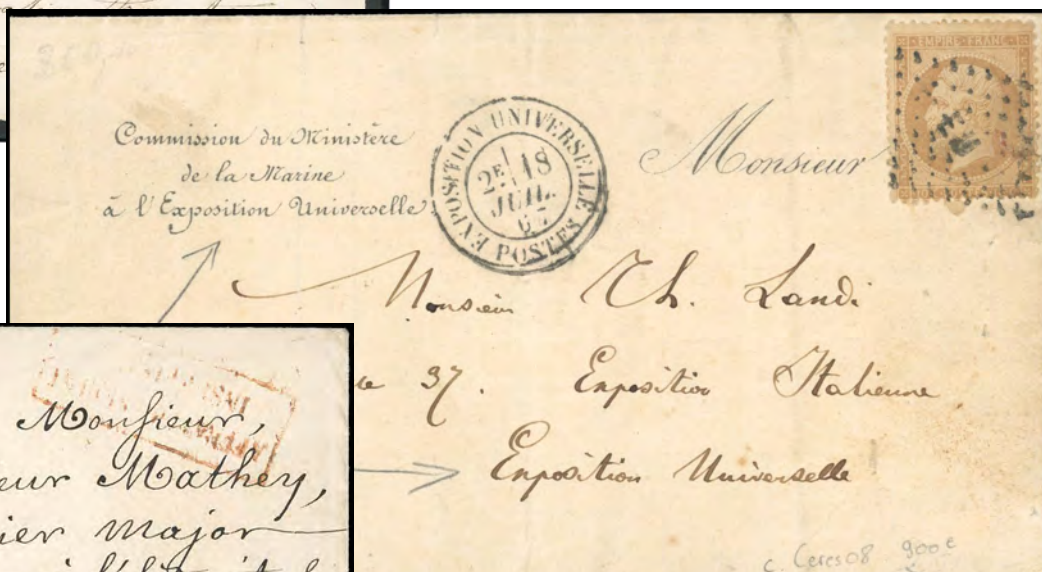 EMPIRE FRANC
Commission du Ministère
de la Marine
à l'Exposition Universelle
EXPOSITION UNIVERSELLE
2E 18
JUIL.
67
POSTES
Monsieur
Monsieur Th. Landi
37. Exposition Italienne
Exposition Universelle
c. Ceres 08 900€
Monsieur,
eur Mathey,
ier major